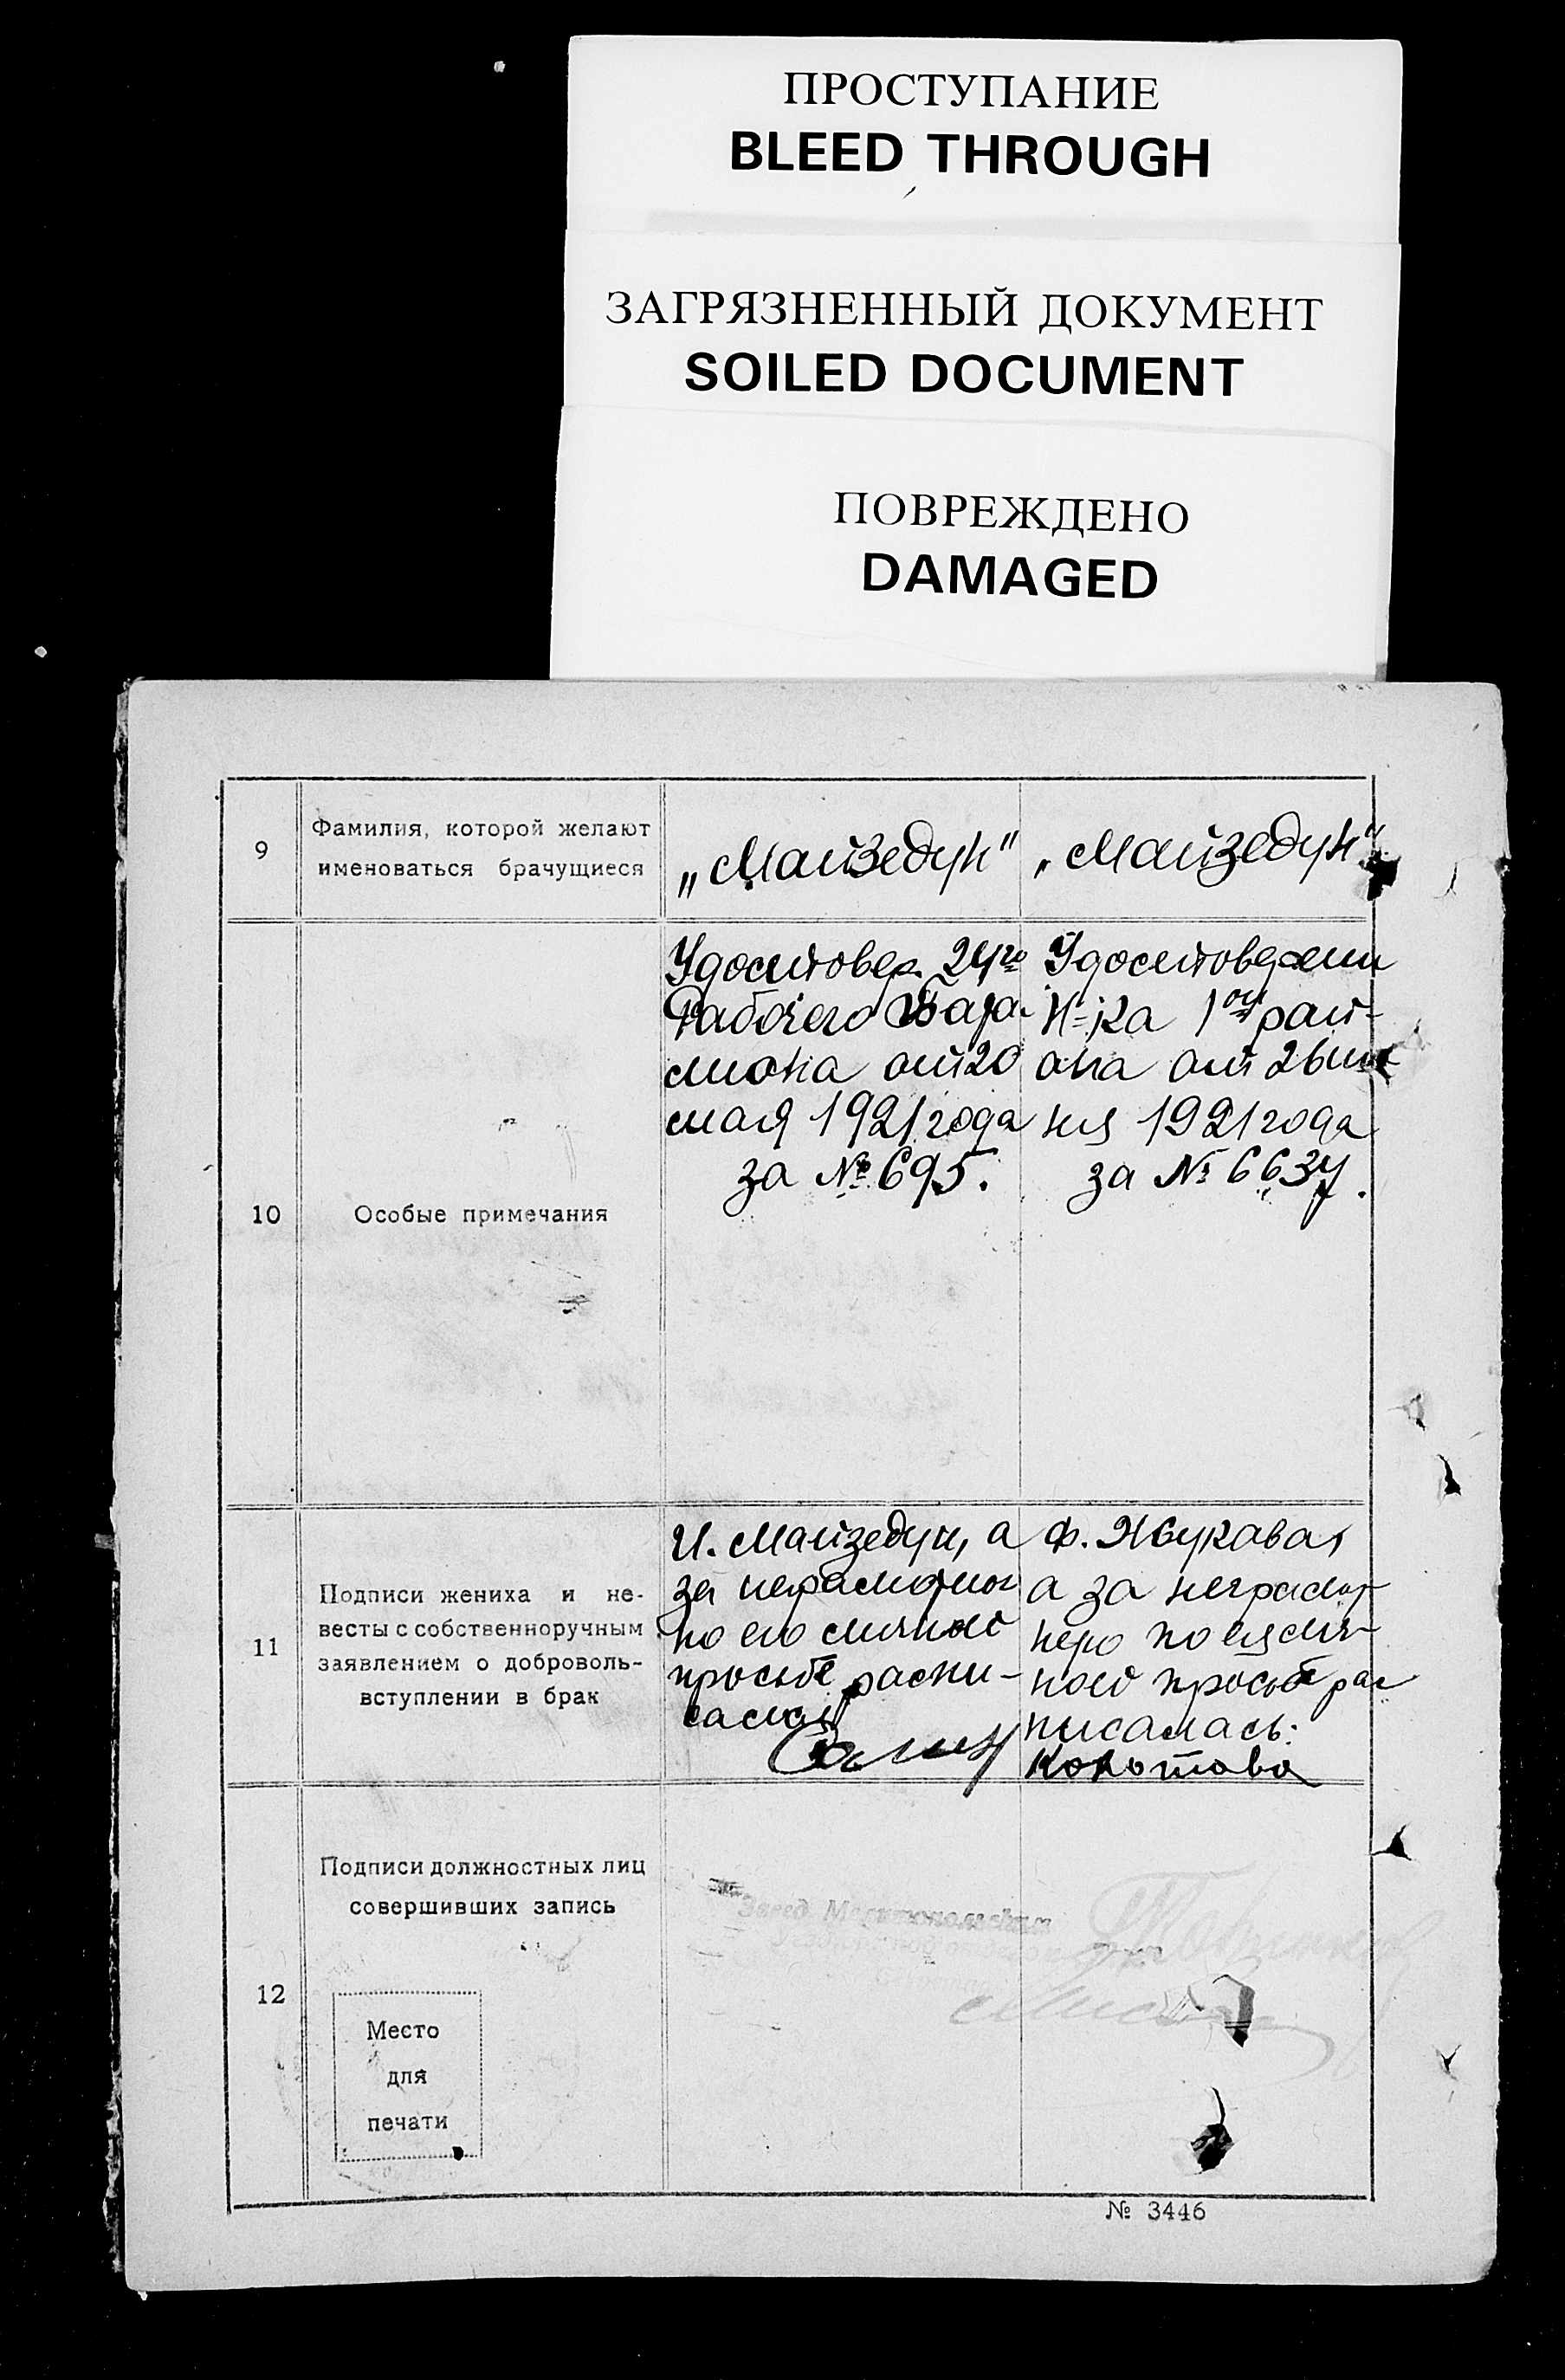 ПРОСТУПАНИЕ
BLEED THROUGH
ЗАГРЯЗНЕННЫЙ ДОКУМЕНТ
SOILED DOCUMENT
ПОВРЕЖДЕНО
DAMAGED
9
Фамилия, которой желают
именоваться брачущиеся
„Майзедун"
„Майзедун"
10
Особые примечания
Удостовер. 24го
Рабочего Бата-
лиона от 20
мая 1921 года
за № 695.
Удостоверени
Н-ка 1ой рай-
она от 26 ию
ня 1921 года
за № 6637.
11
Подписи жениха и не-
весты с собственноручным
заявлением о доброволь-
вступлении в брак
И. Майзедун, а
за неграмотног
по его личной
просьбе распи-
сался
Ф. Жукава,
а за неграмот-
ную по ея лич-
ной просьбе рас
писалась:
12
Подписи должностных лиц
совершивших запись
Завед. Мелитопольским
Место
для
печати
№ 3446